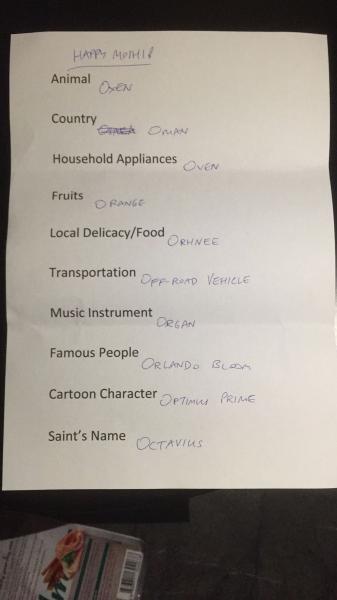 HAPPY MOTHI!
Animal OXEN
Country OMAN
Household Appliances OVEN
Fruits ORANGE
Local Delicacy/Food ORHNEE
Transportation OFF-ROAD VEHICLE
Music Instrument ORGAN
Famous People ORLANDO BLOOM
Cartoon Character OPTIMUS PRIME
Saint's Name OCTAVIUS